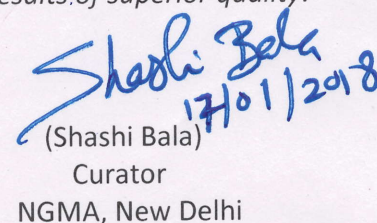 results of superior quality.
Shashi Bala
17/01/2018
(Shashi Bala)
Curator
NGMA, New Delhi